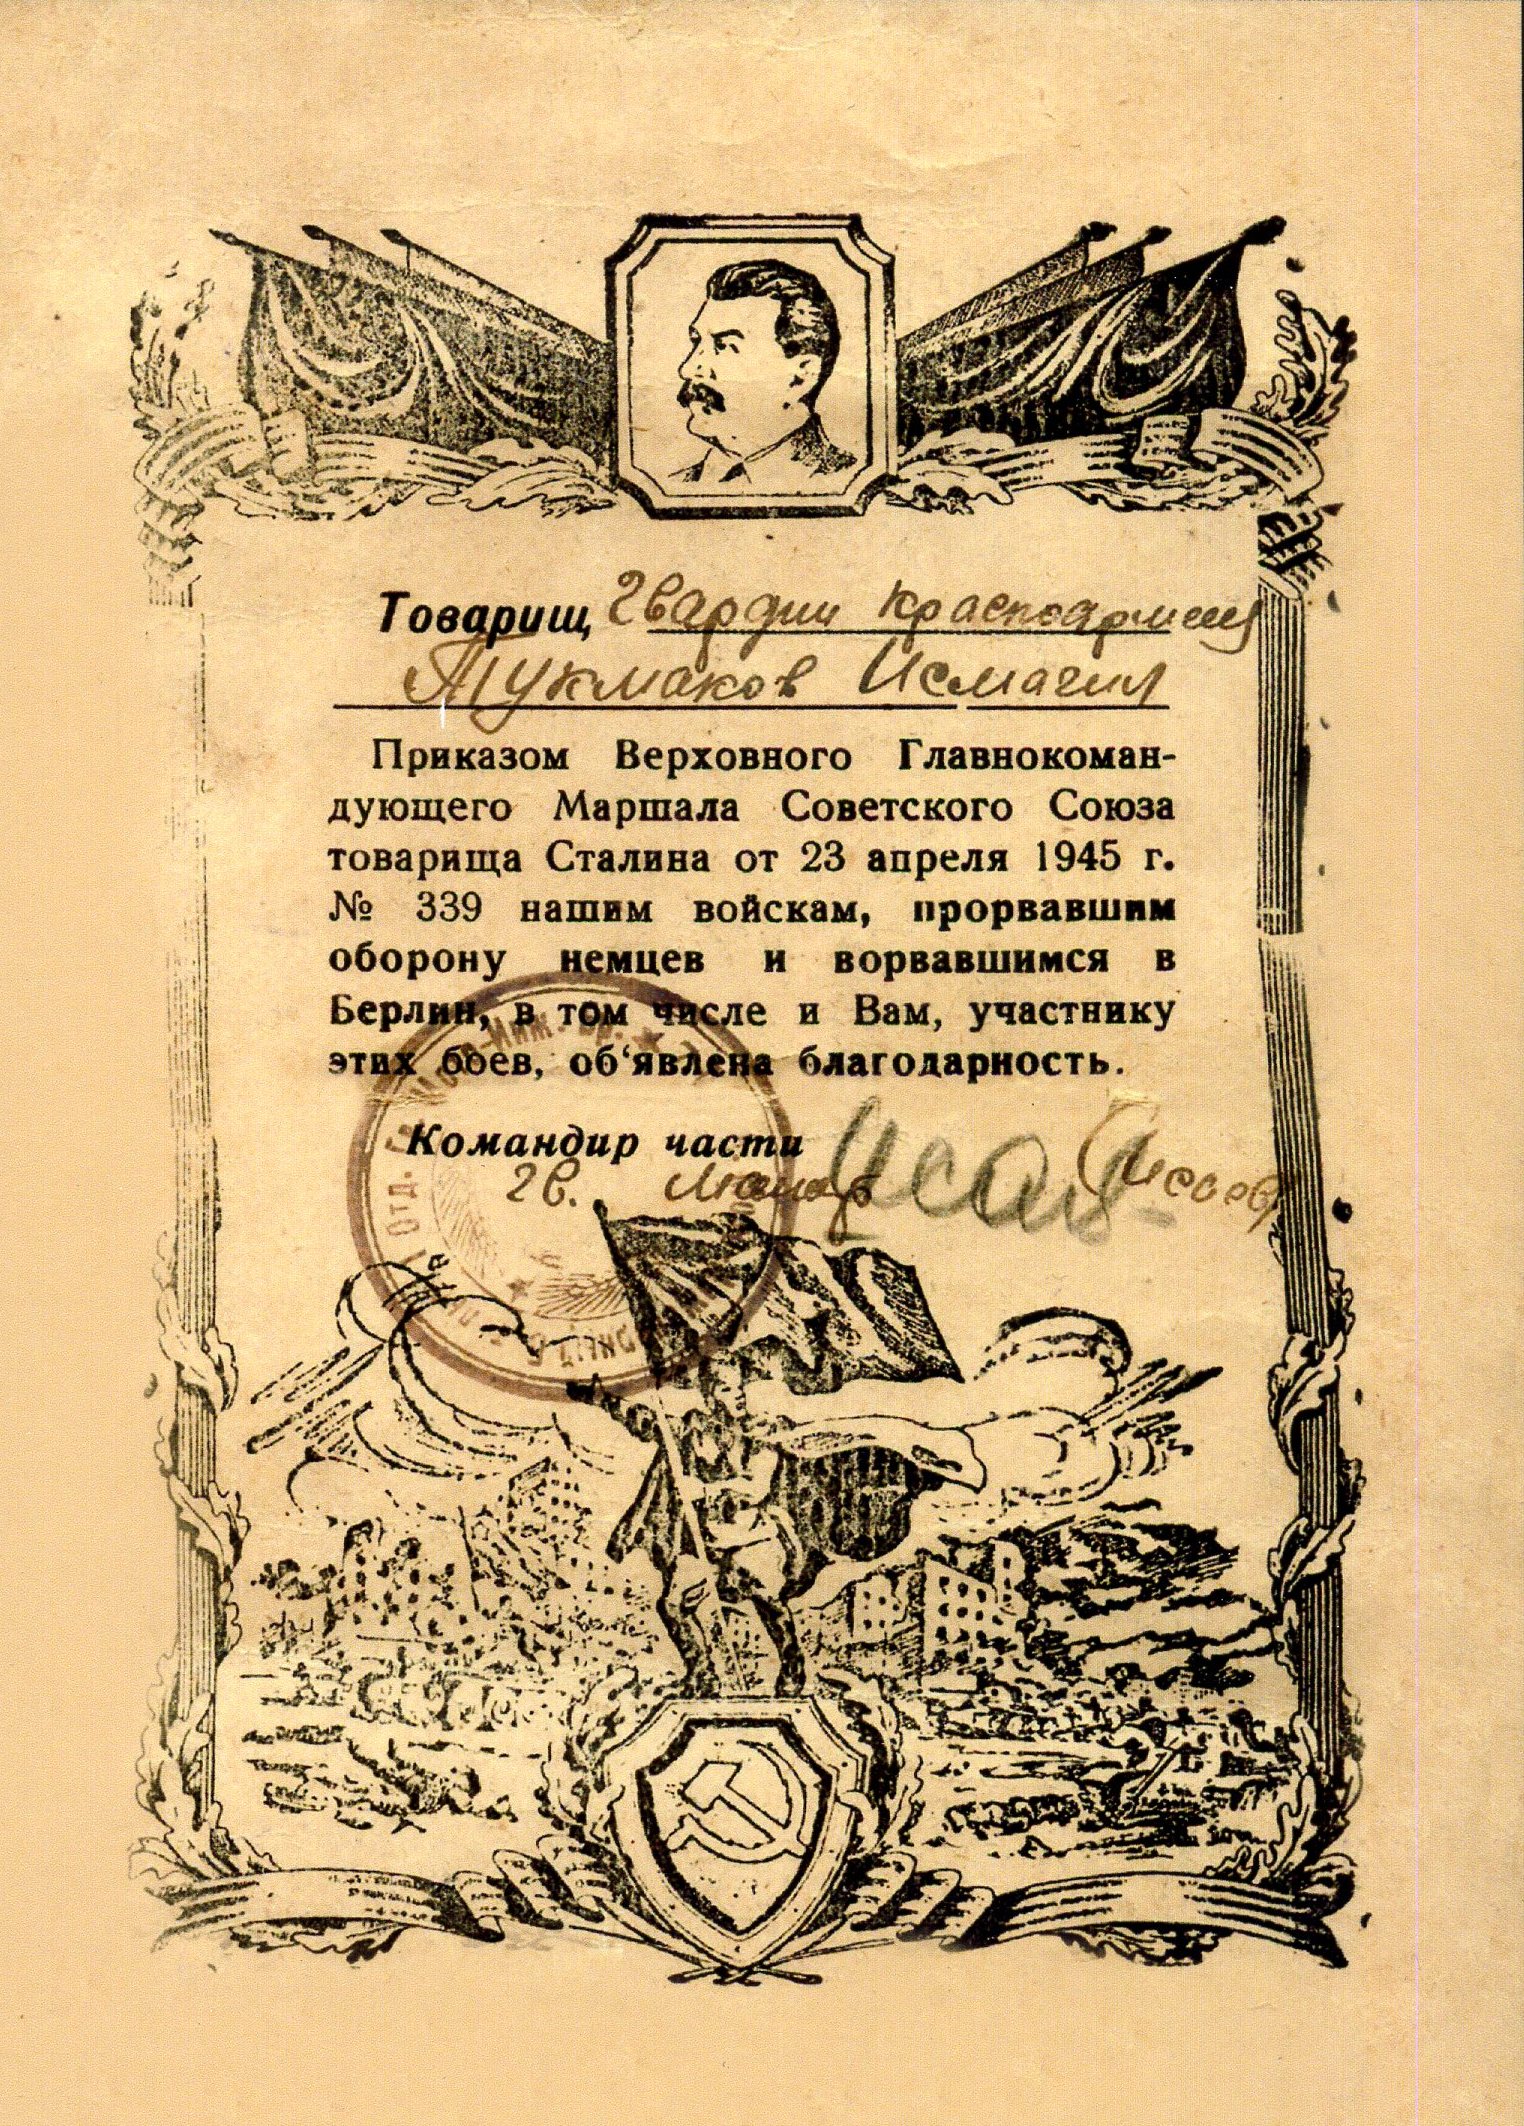 Товарищ Гвардии красноармеец
Тукмаков Исмагил
Приказом Верховного Главнокоман-
дующего Маршала Советского Союза
товарища Сталина от 23 апреля 1945 г.
№ 339 нашим войскам, прорвавшим
оборону немцев и ворвавшимся в
Берлин, в том числе и Вам, участнику
этих боев, об‘явлена благодарность.
Командир части
Гв. майор Исаев
Отд.